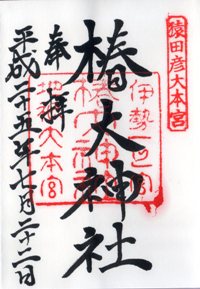 猿田彦大本宮
伊勢一之宮
椿大神社
地祇大本宮
椿大神社
奉拝
平成二十五年七月二十二日